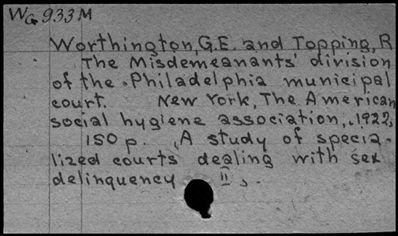 WG 933M
Worthington, G.E. and Topping, R
The Misdemeanants' division
of the Philadelphia municipal
court. New York, The American
social hygiene association, 1922,
150 p. (A study of specia-
lized courts dealing with sex
delinquency II).